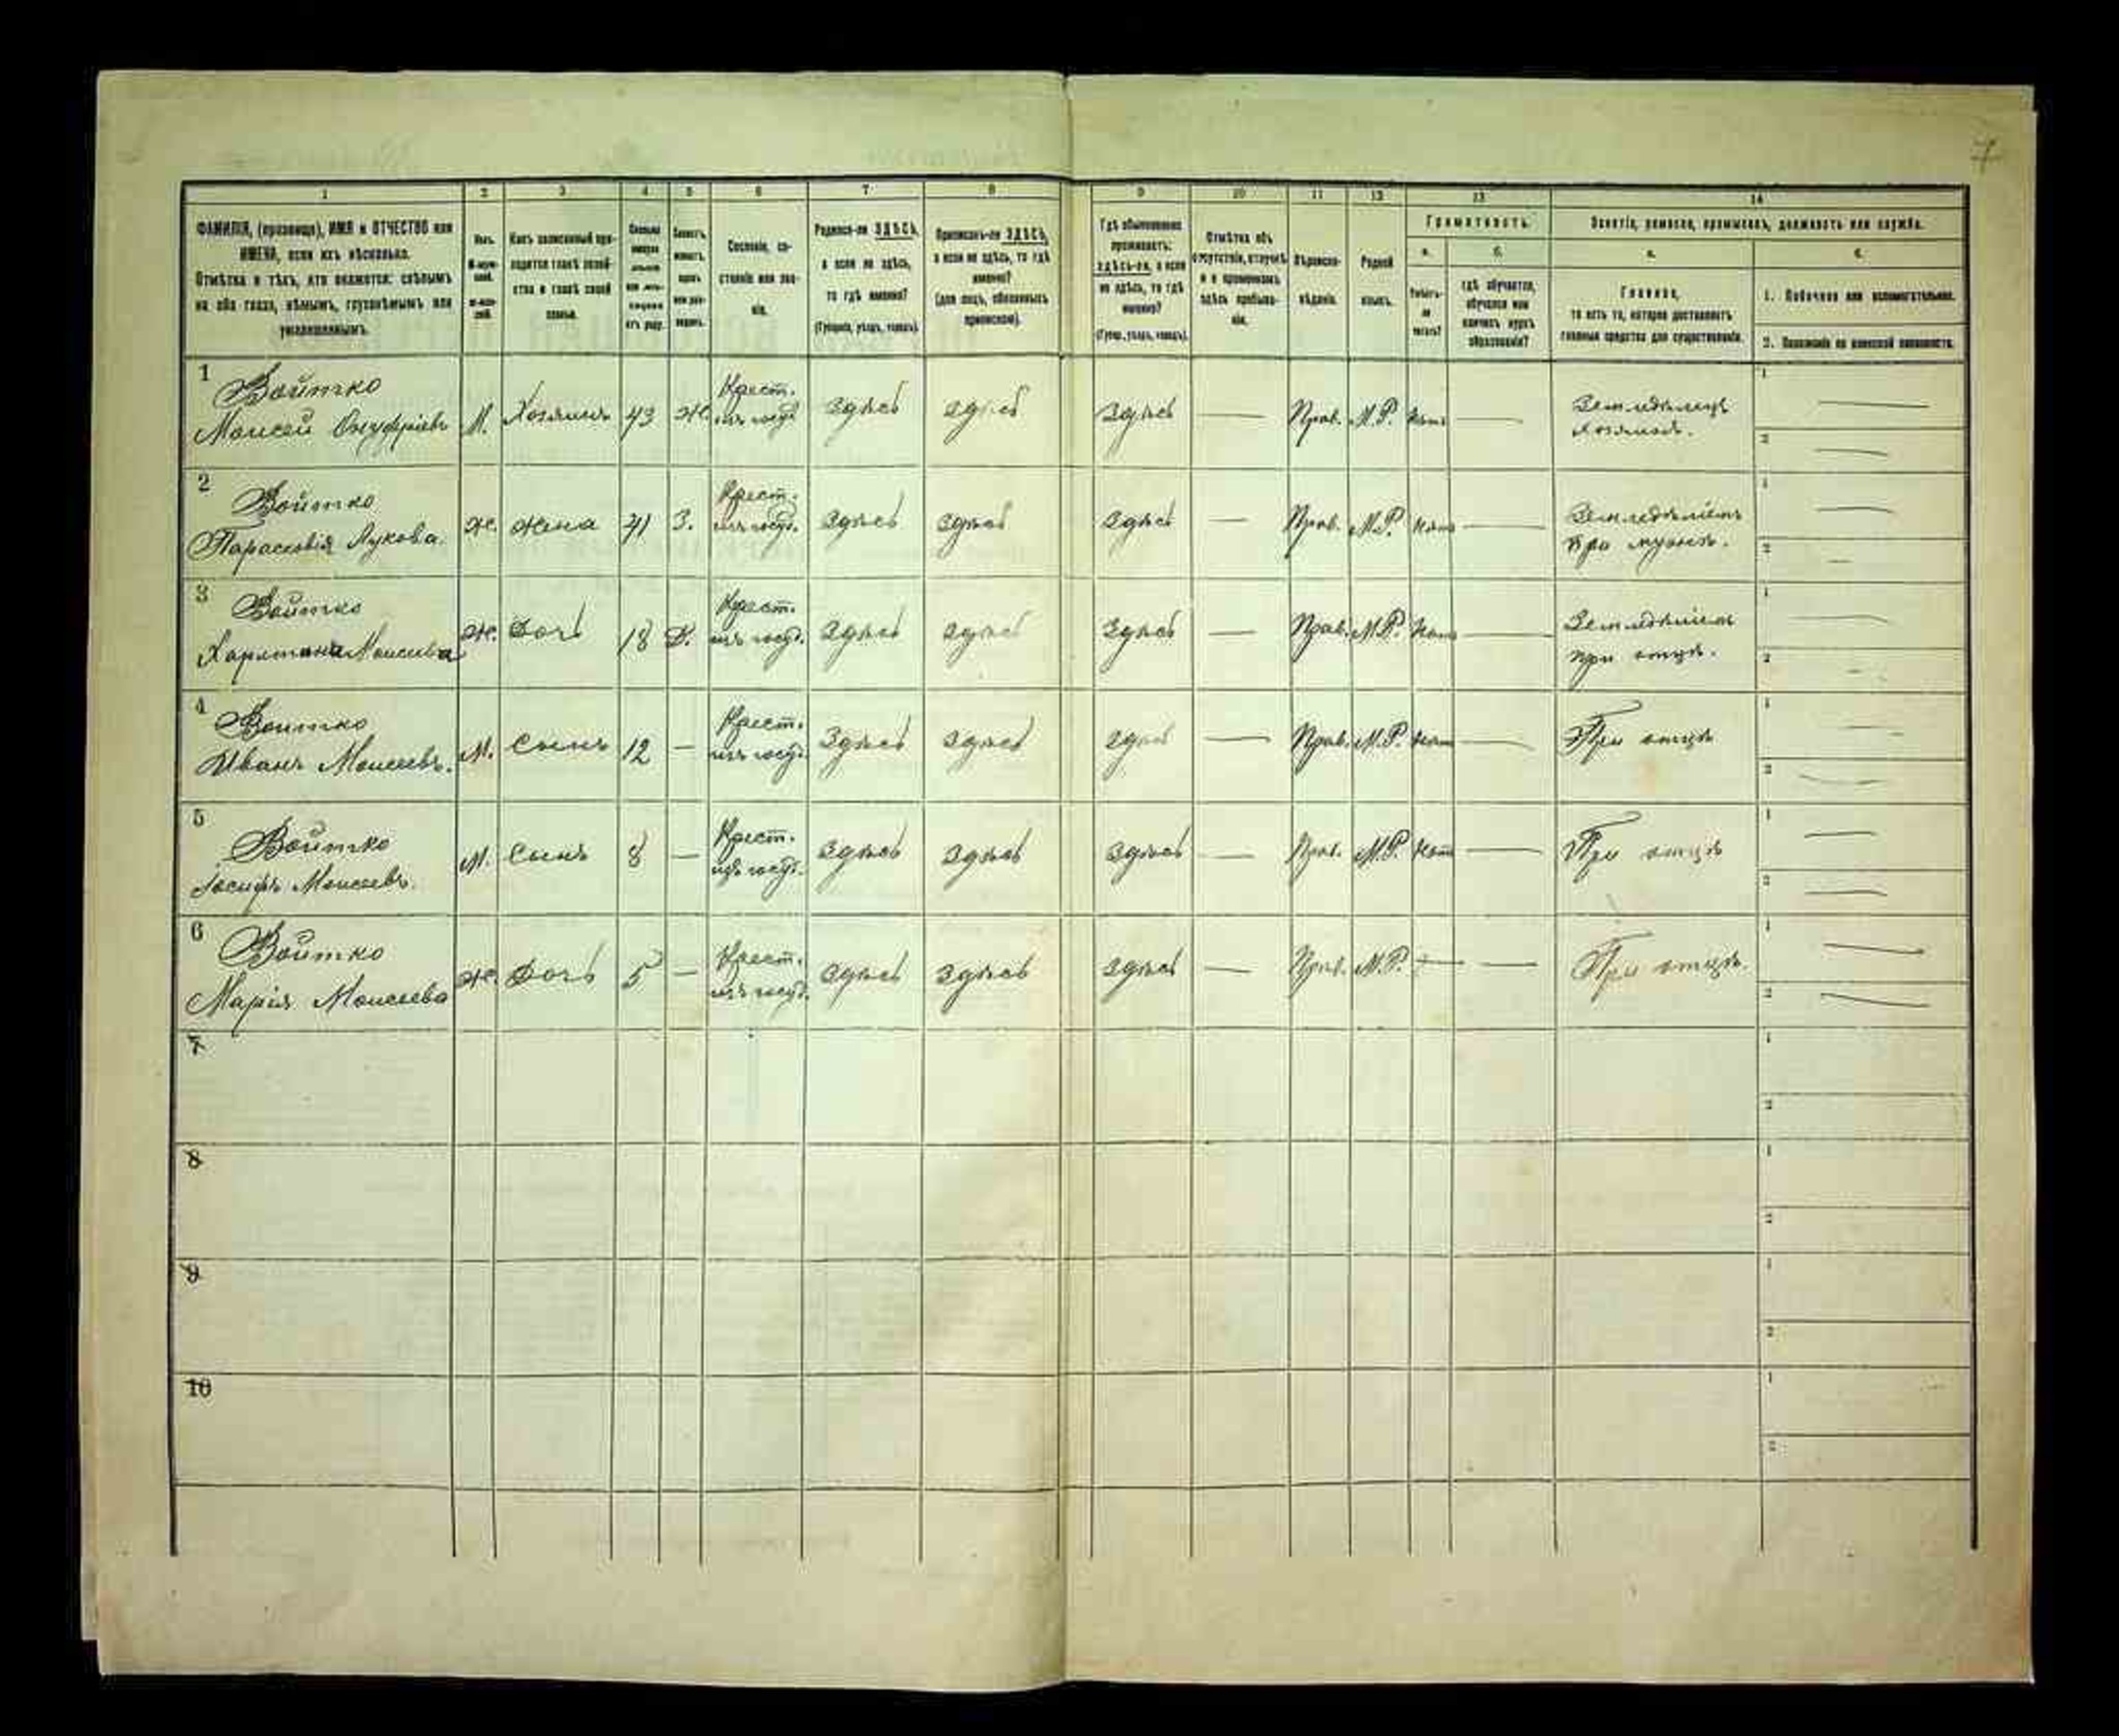 7
1 2 3 4 5 6 7 8 9 10 11 12 13 14
ФАМИЛІЯ, (прозвище), ИМЯ и ОТЧЕСТВО или
ИМЕНА, если ихъ нѣсколько.
Отмѣтка о тѣхъ, кто окажется: слѣпымъ
на оба глаза, нѣмымъ, глухонѣмымъ или
умалишеннымъ.
Сословіе, со-
стояніе или зва-
ніе.
Родился-ли ЗДѢСЬ,
а если не здѣсь,
то гдѣ именно?
(Губернія, уѣздъ, городъ).
Приписанъ-ли ЗДѢСЬ,
а если не здѣсь, то гдѣ
именно?
(для лицъ, обязанныхъ
припискою).
Гдѣ обыкновенно
проживаетъ:
здѣсь-ли, а если
не здѣсь, то гдѣ
именно?
(Губер., уѣздъ, городъ).
Отмѣтка объ
отсутствіи, отлучкѣ
и о временномъ
здѣсь пребыва-
ніи.
Вѣроиспо-
вѣданіе.
Родной
языкъ.
Грамотность.
а. б.
Умѣетъ-
ли
читать?
гдѣ обучается,
обучался или
кончилъ курсъ
образованія?
Занятіе, ремесло, промыселъ, должность или служба.
а. б.
Главное,
то есть то, которое доставляетъ
главныя средства для существованія.
1. Побочное или вспомогательное.
2. Положеніе по воинской повинности.
1 Войтко
Моисей Онуфріевъ М. Хозяинъ 43 Ж Крест. изъ госуд. здѣсь здѣсь здѣсь — Прав. М.Р. нѣтъ — Земледѣлецъ хозяинъ. 1 — 2 —
2 Войтко
Парасковія Лукова. ж. жена 41 З. Крест. изъ госуд. здѣсь здѣсь здѣсь — Прав. М.Р. нѣтъ — при мужѣ. 1 — 2 —
3 Войтко
Моисеева ж. Дочь 18 Д. Крест. изъ госуд. здѣсь здѣсь здѣсь — Прав. М.Р. нѣтъ — при отцѣ. 1 — 2 —
4 Войтко
Иванъ Моисеевъ. М. Сынъ 12 — Крест. изъ госуд. здѣсь здѣсь здѣсь — Прав. М.Р. нѣтъ — При отцѣ 1 — 2 —
5 Войтко
Іосифъ Моисеевъ. М. Сынъ 8 — Крест. изъ госуд. здѣсь здѣсь здѣсь — Прав. М.Р. нѣтъ — При отцѣ 1 — 2 —
6 Войтко
Марія Моисеева ж. Дочь 5 — Крест. изъ госуд. здѣсь здѣсь здѣсь — Прав. М.Р. — — При отцѣ. 1 — 2 —
7 1 2
8 1 2
9 1 2
10 1 2